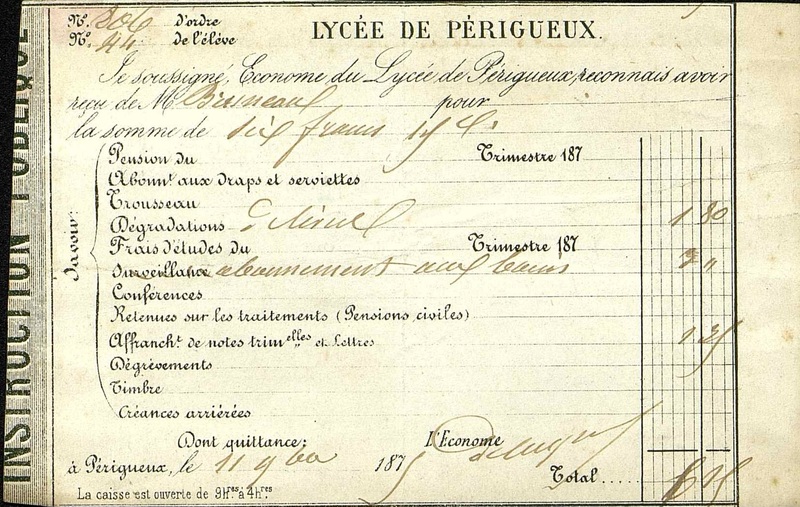 INSTRUCTION PUBLIQUE
Nº. 806 d'ordre
Nº. 44 de l'élève
LYCÉE DE PÉRIGUEUX.
Je soussigné, Econome du Lycée de Périgueux, reconnais avoir
reçu de M. pour
la somme de six francs 15 c.
Savoir:
Pension du Trimestre 187
Abonnt. aux draps et serviettes
Trousseau
Dégradations 1 80
Frais d'études du Trimestre 187
Surveillance abonnement aux bains 3 "
Conférences
Retenues sur les traitements (Pensions civiles)
Affrancht. de notes trimelles et Lettres 1 35
Dégrèvements
Timbre
Créances arriérées
Dont quittance: L'Econome
à Périgueux, le 11 9bre 1875
Total.... 6 15
La caisse est ouverte de 9hres à 4hres.